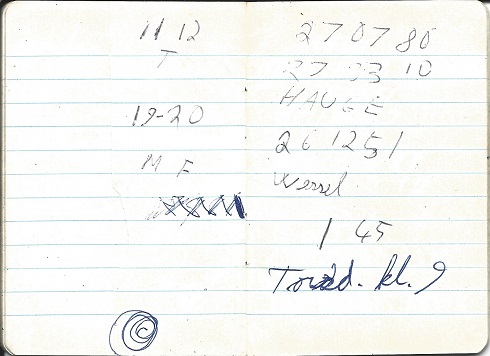 11 12
T
19-20
M F
27 07 80
27 03 10
HAUGE
26 12 51
Wessel
1 45
Torsd. kl. 9